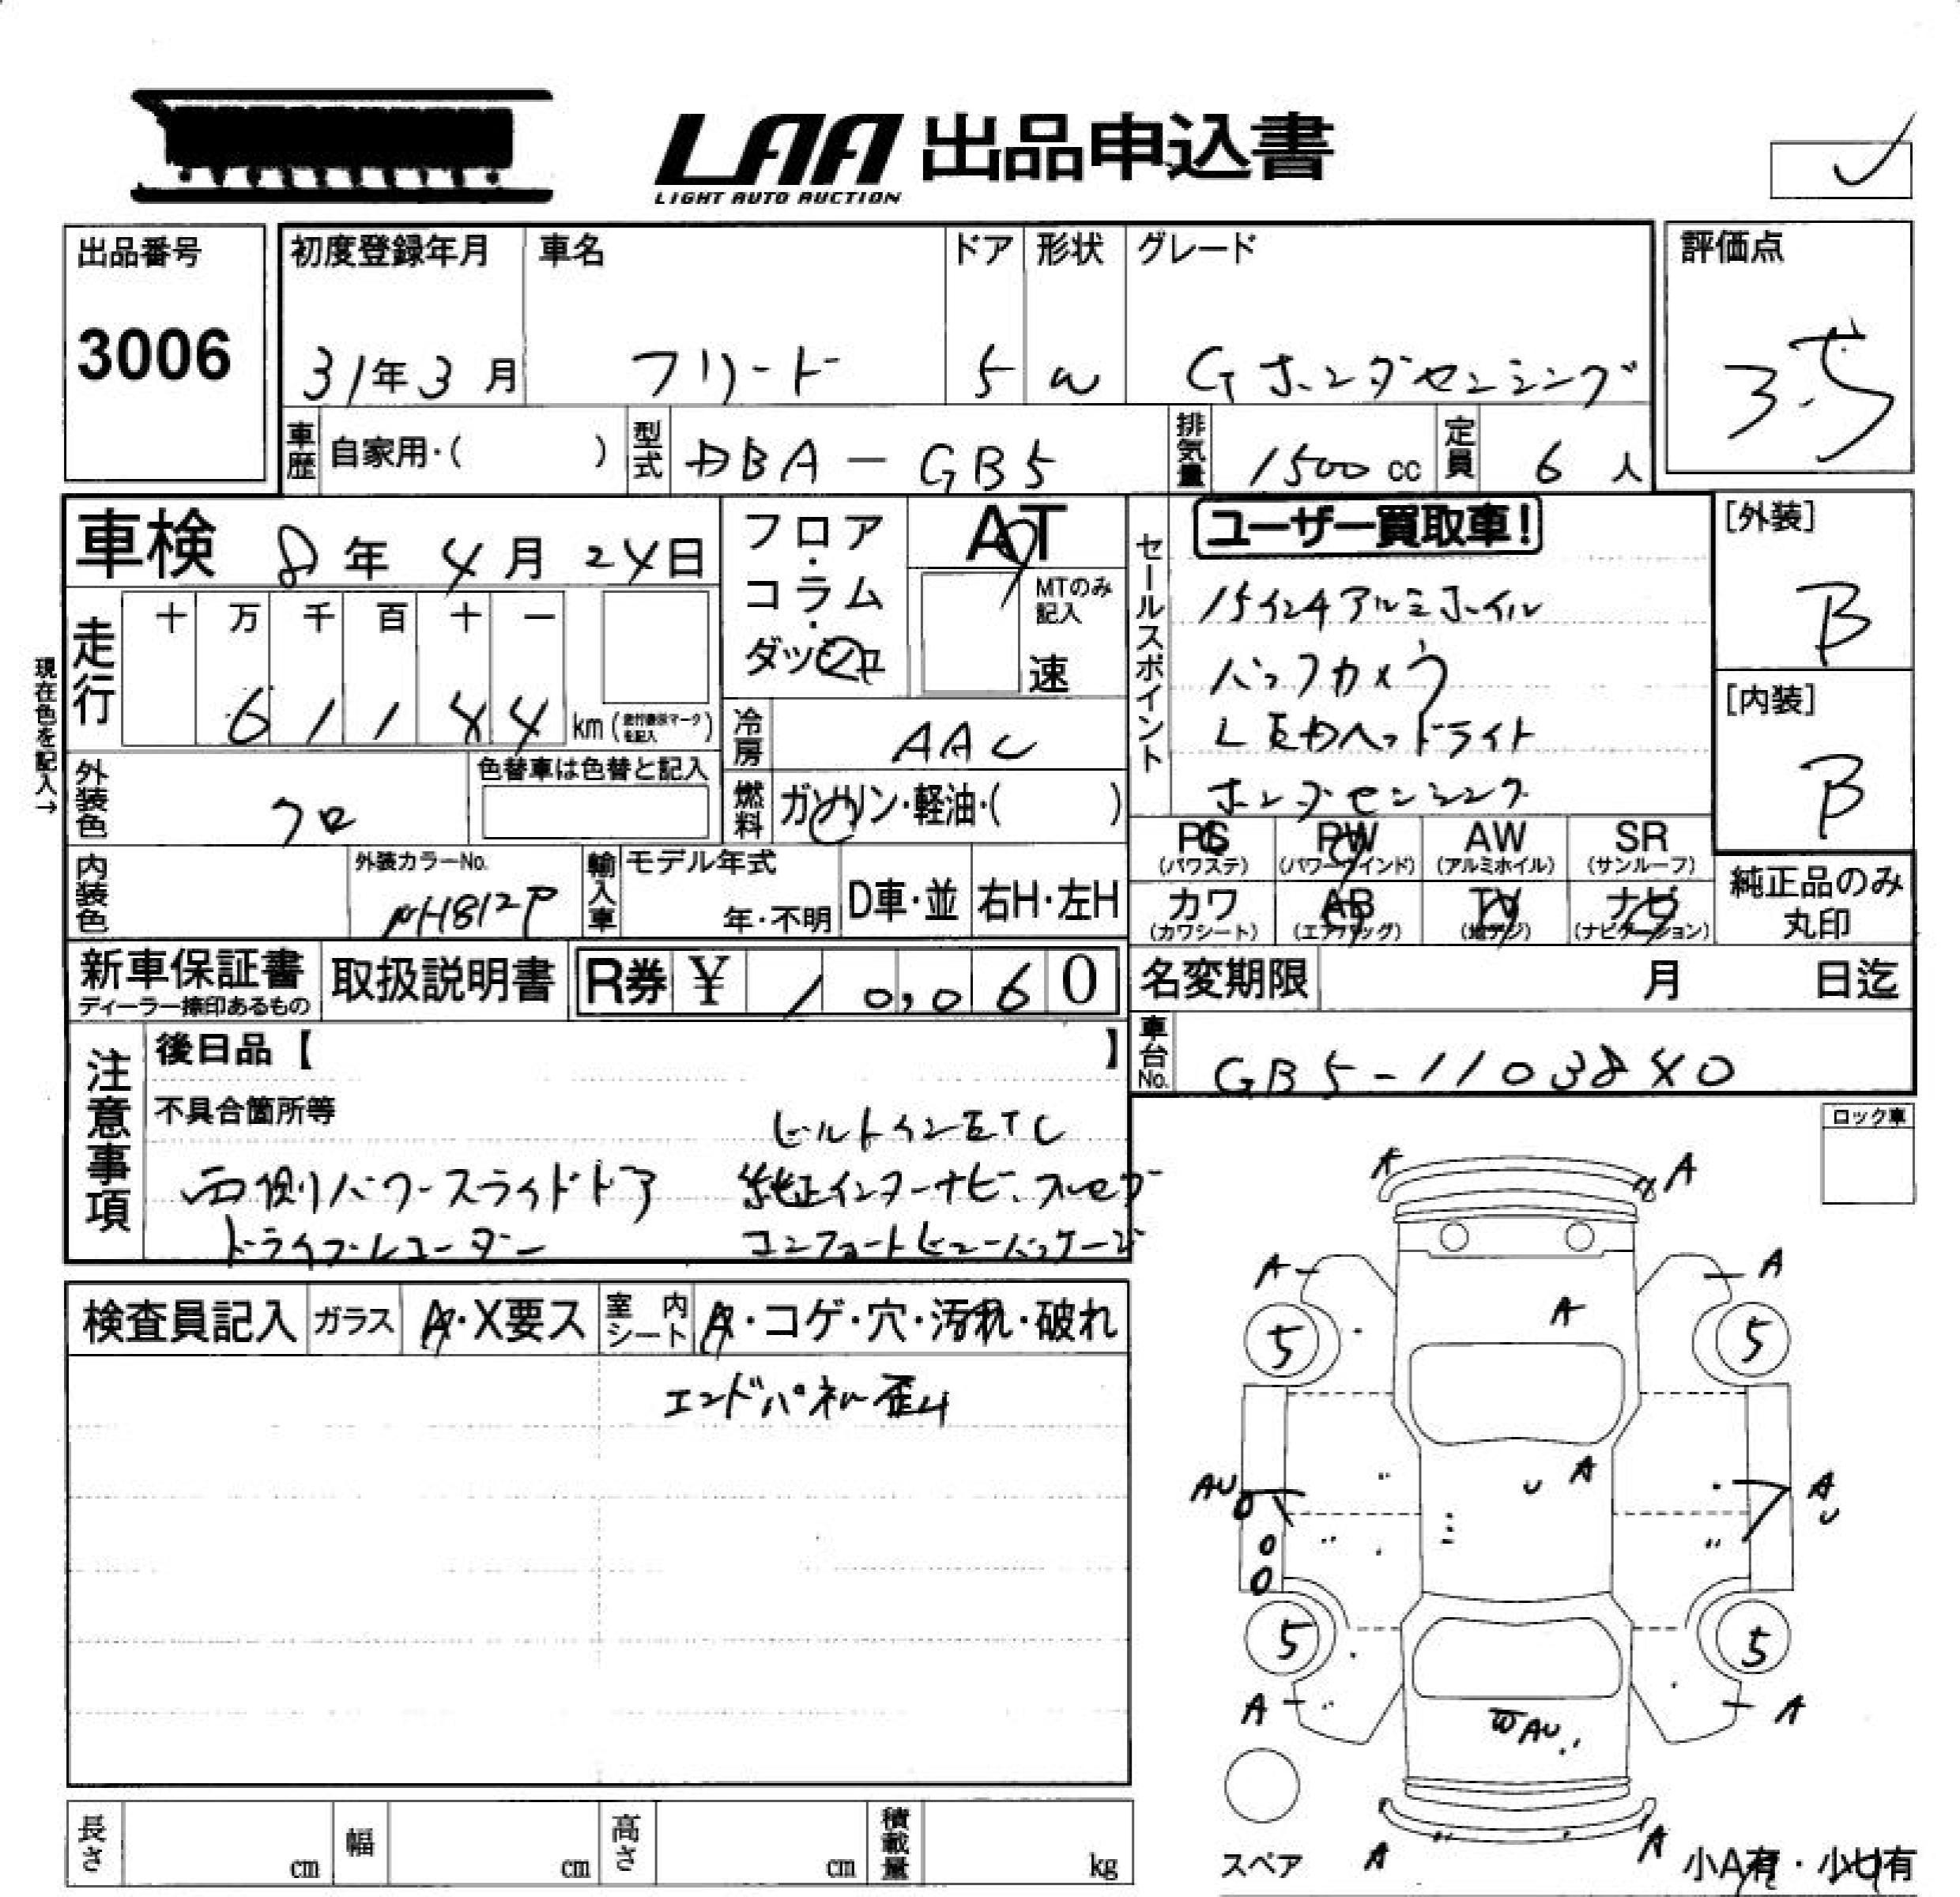 LAA 出品申込書
LIGHT AUTO AUCTION
出品番号
3006
初度登録年月
31年3月
車名
フリード
ドア
5
形状
W
グレード
Gホンダセンシング
評価点
3.5
車歴 自家用・( )
型式 DBA-GB5
排気量 1500cc
定員 6人
車検 8年4月24日
走行 十 万 千 百 十 一
6 1 1 4 4 km (走行表示マークを記入)
現在色を記入→
外装色 クロ
色替車は色替と記入
内装色
外装カラーNo.
NH812P
輸入車 モデル年式
年・不明
D車・並
右H・左H
フロア・コラム・ダッシュ
AT
MTのみ記入
速
冷房 AAC
燃料 ガソリン・軽油・( )
セールスポイント
ユーザー買取車!
15インチアルミホイル
バックカメラ
LEDヘッドライト
ホンダセンシング
[外装]
B
[内装]
B
PS PW AW SR
(パワステ) (パワーウインド) (アルミホイル) (サンルーフ)
カワ AB TV ナビ
(カワシート) (エアバッグ) (地デジ) (ナビゲーション)
純正品のみ丸印
新車保証書
ディーラー捺印あるもの
取扱説明書
R券 ¥ 10,060
名変期限 月 日迄
車台No. GB5-1103840
注意事項
後日品【 】
不具合箇所等
ビルトインETC
両側パワースライドドア 純正インターナビ、フルセグ
ドライブレコーダー コンフォートビューパッケージ
検査員記入 ガラス A・X要ス 室内シート A・コゲ・穴・汚れ・破れ
エンドパネル歪み
ロック車
A A
A A
5 A 5
AU A A
U U
0
0
0
5 5
A A
W AU
A A
スペア
小A有・小U有
長さ cm 幅 cm 高さ cm 積載量 kg